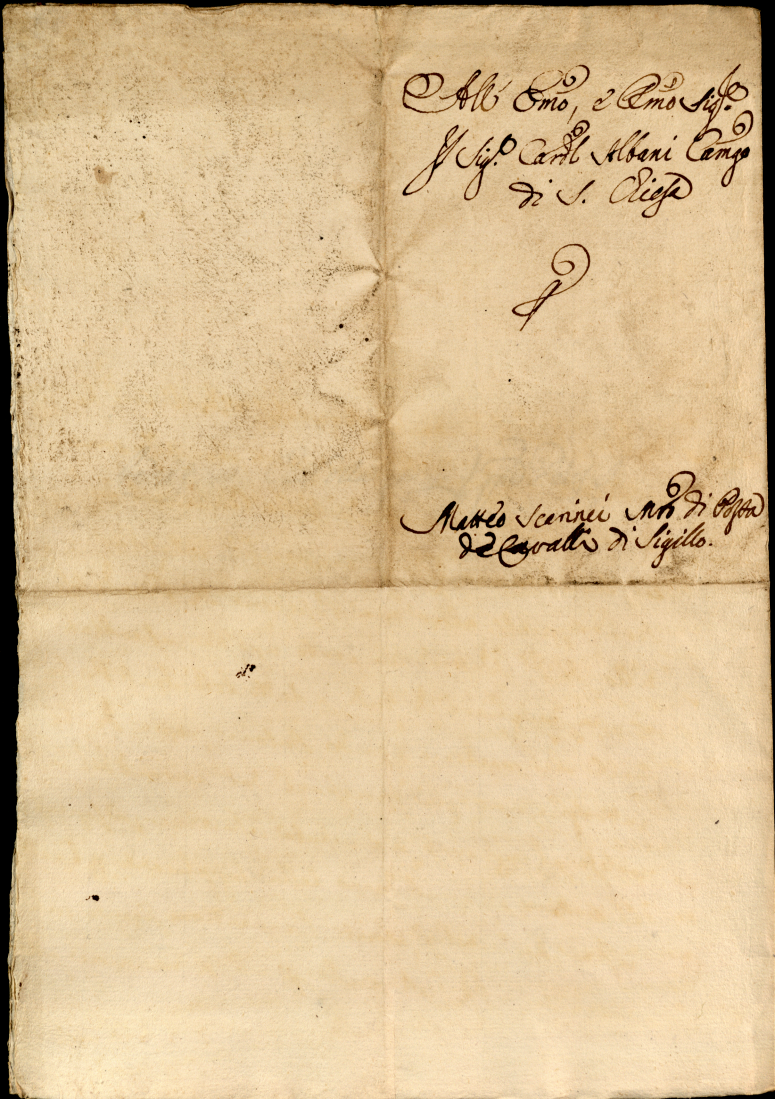 All' Emo, e Rmo Sigr.
Il Sigr. Cardl Albani Camgo
di S. Chiesa
Matteo Scarinci Mro di Posta
de Cavalli di Sigillo.